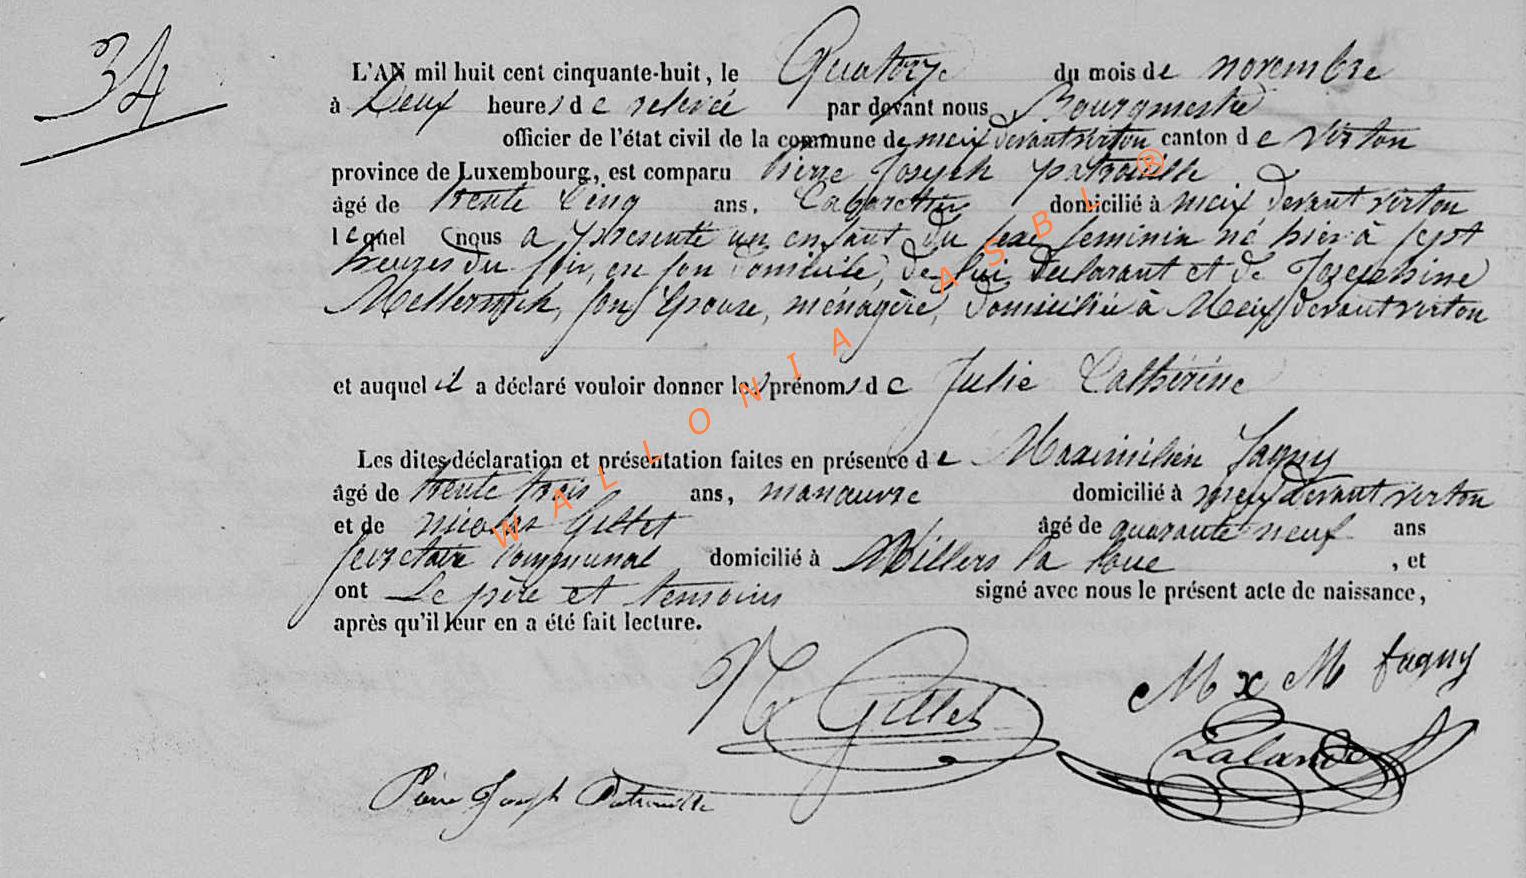 34
L'AN mil huit cent cinquante-huit, le Quatorze du mois de novembre
à Deux heures de relevée par devant nous, Bourgmestre
officier de l'état civil de la commune de meix devant virton canton de virton
province de Luxembourg, est comparu Pierre Joseph patrouille
âgé de trente Cinq ans, Cabaretier domicilié à meix devant virton
lequel nous a présenté un enfant du sexe féminin né hier à sept
heures du soir, en son domicile, de lui déclarant et de Josephine
son épouse, ménagère, domiciliée à Meix devant virton
et auquel il a déclaré vouloir donner les prénoms de Julie Cathérine
Les dites déclaration et présentation faites en présence de Maximilien fagny
âgé de trente trois ans, manœuvre domicilié à meix devant virton
et de nicolas Gillet âgé de quarante neuf ans
secrétaire Communal domicilié à Villers la loue, et
ont Le père et temoins signé avec nous le présent acte de naissance,
après qu'il leur en a été fait lecture.
N Gillet
M x M fagny
Lalande
Pierre Joseph Patrouille
WALLONIA ASBL ®